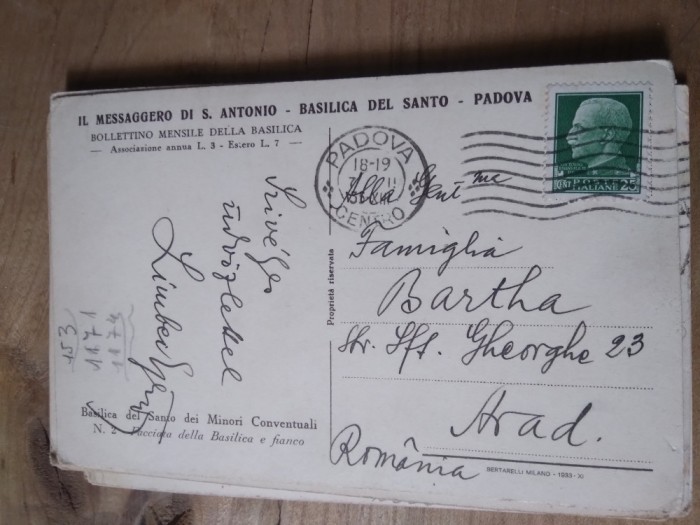 IL MESSAGGERO DI S. ANTONIO - BASILICA DEL SANTO - PADOVA
BOLLETTINO MENSILE DELLA BASILICA
— Associazione annua L. 3 - Estero L. 7 —
PADOVA
18-19
CENTRO
POSTE
ITALIANE 25
Alla Gent.ma
Famiglia
Bartha
Str. Sft. Gheorghe 23
Arad.
România
Szivélyes
üdvözlettel
Proprietà riservata
153
1171
1174
Basilica del Santo dei Minori Conventuali
N. 2 - Facciata della Basilica e fianco
BERTARELLI MILANO - 1933-XI